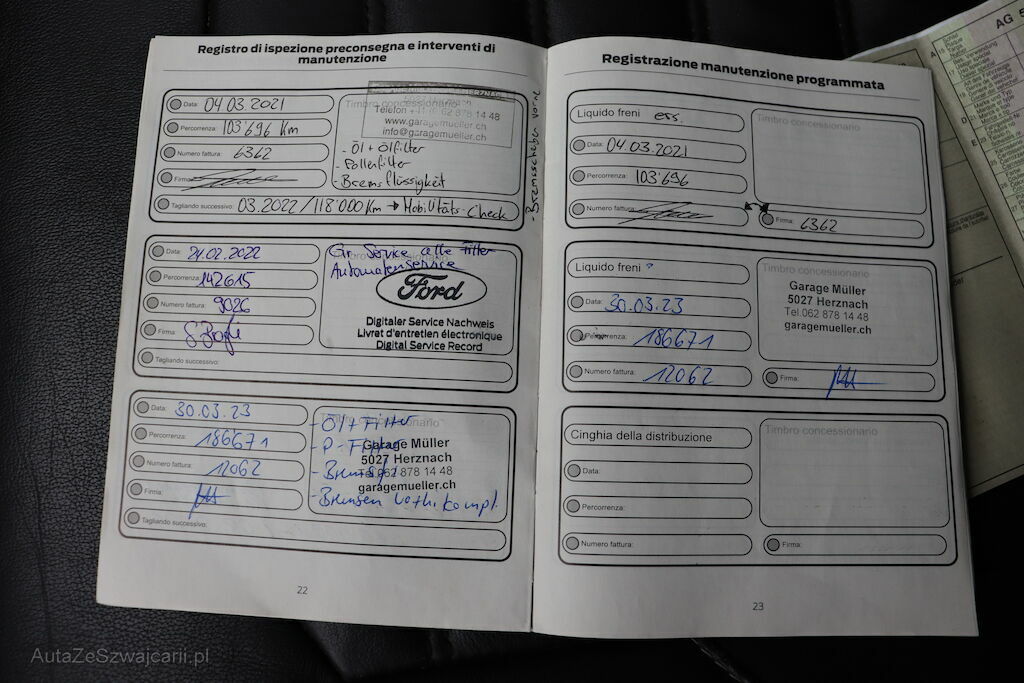 Registro di ispezione preconsegna e interventi di
manutenzione
Data: 04.03.2021
Percorrenza: 103'696 Km
Numero fattura: 6362
Firma:
Tagliando successivo: 03.2022/118'000 Km → Mobilitäts-Check
Timbro concessionario
Telefon 62 878 14 48
www.garagemueller.ch
info@garagemueller.ch
- Öl + Ölfilter
- Pollenfilter
- Bremsflüssigkeit
- Bremsscheiben vorne
Data: 21.02.2022
Percorrenza: 142615
Numero fattura: 9026
Firma:
Tagliando successivo:
Gr. Service alle Filter
Automatenservice
Ford
Digitaler Service Nachweis
Livret d'entretien électronique
Digital Service Record
Data: 30.03.23
Percorrenza: 186671
Numero fattura: 12062
Firma:
Tagliando successivo:
- Öl + Filter
- P-Filter
Garage Müller
5027 Herznach
Tel.062 878 14 48
garagemueller.ch
- Bremsen kompl.
22
Registrazione manutenzione programmata
Liquido freni ers.
Data: 04.03.2021
Percorrenza: 103'696
Numero fattura:
Timbro concessionario
Firma: 6362
Liquido freni ?
Data: 30.03.23
Percorrenza: 186671
Numero fattura: 12062
Timbro concessionario
Garage Müller
5027 Herznach
Tel.062 878 14 48
garagemueller.ch
Firma:
Cinghia della distribuzione
Data:
Percorrenza:
Numero fattura:
Timbro concessionario
Firma:
23
AG
AutaZeSzwajcarii.pl